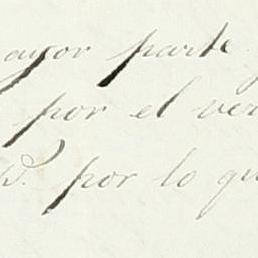 ayor parte
por el ver
D. por lo qu